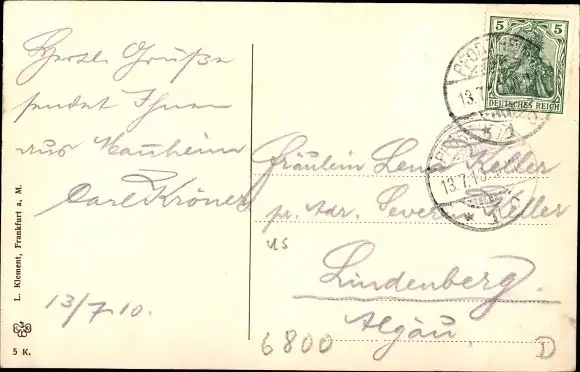 Herzl. Grüße
sendet Ihnen
aus Mannheim
Carl Kröner
13/7.10.
L. Klement, Frankfurt a. M.
5 K.
5 5
DEUTSCHES REICH
13.7.1
13.7.1
Fräulein Lena Keller
pr. Adr. Severin Keller
Lindenberg.
Algäu.
us
6800
D